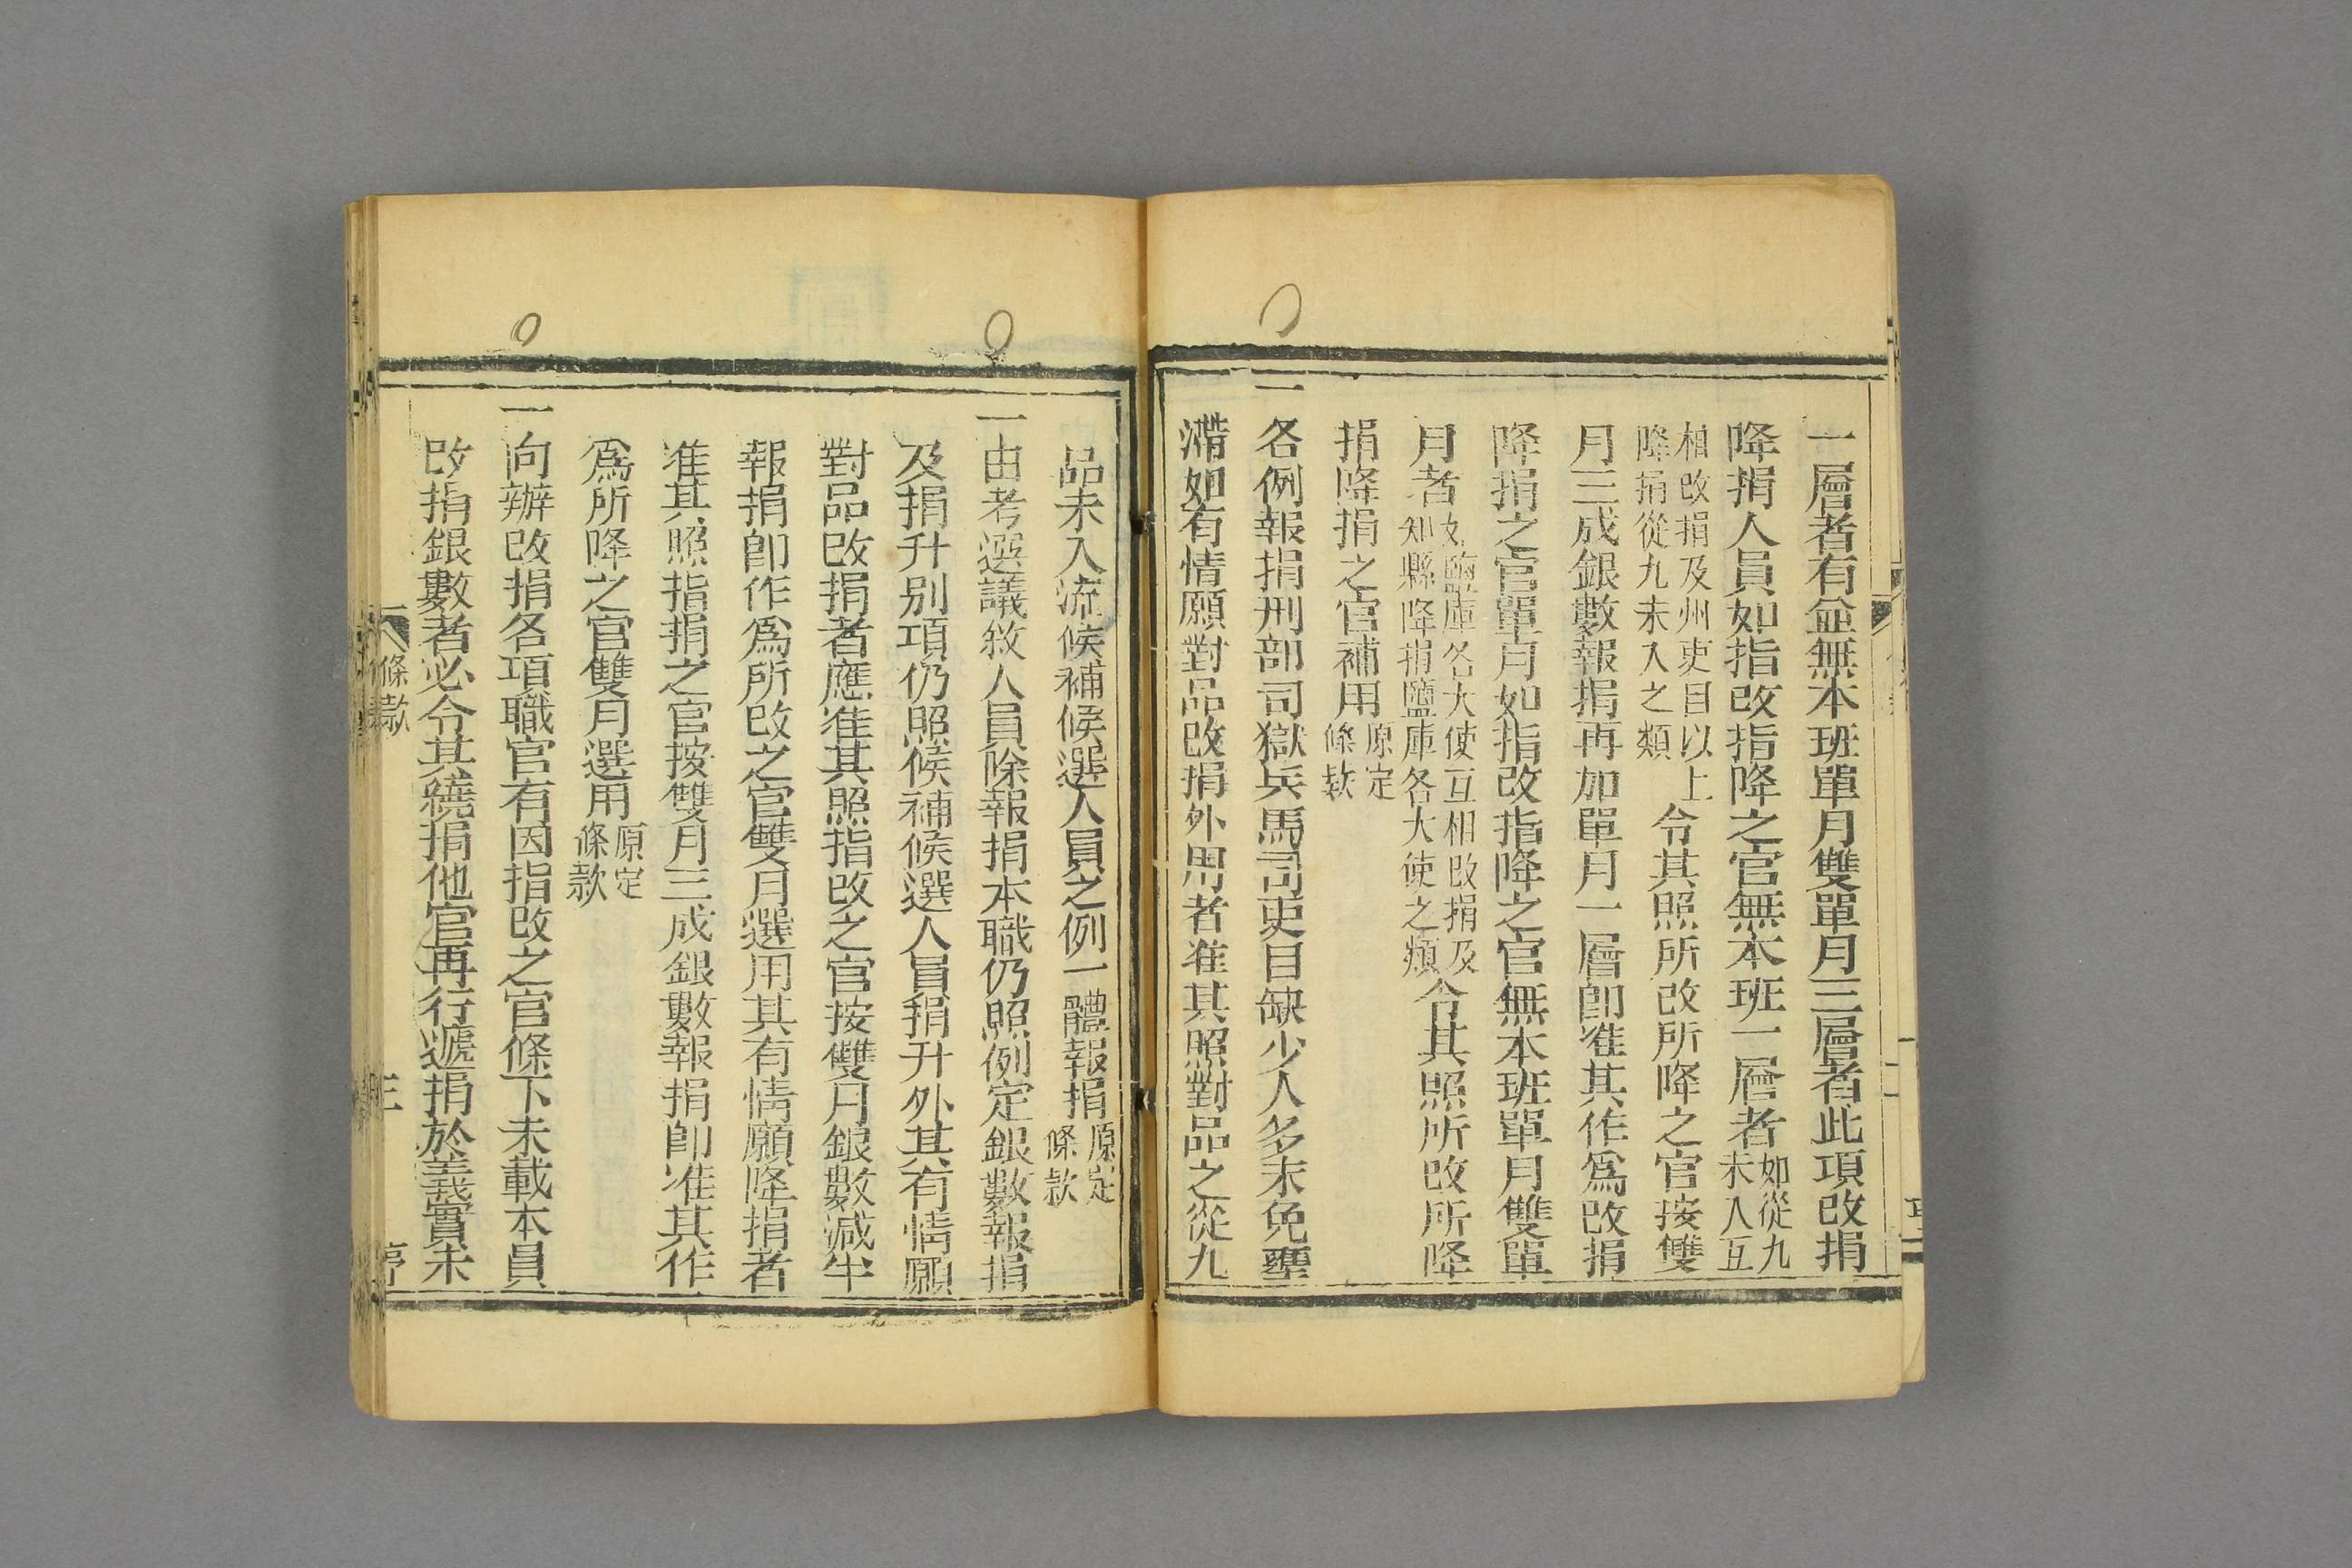 一層者有並無本班單月雙單月三層者此項改捐
降捐人員如指改指降之官無本班一層者如從九未入互
相改捐及州吏目以上降捐從九未入之類令其照所改所降之官按雙
月三成銀數報捐再加單月一層卽准其作爲改捐
降捐之官單月如指改指降之官無本班單月雙單
月者如鹽庫各大使互相改捐及知縣降捐鹽庫各大使之類令其照所改所降
捐降捐之官補用原定條款
一各例報捐刑部司獄兵馬司吏目缺少人多未免壅
滯如有情願對品改捐外用者准其照對品之從九
品未入流候補候選人員之例一體報捐原定條款
一由考選議敘人員除報捐本職仍照例定銀數報捐
及捐升別項仍照候補候選人員捐升外其有情願
對品改捐者應准其照指改之官按雙月銀數減半
報捐卽作爲所改之官雙月選用其有情願降捐者
准其照指捐之官按雙月三成銀數報捐卽准其作
爲所降之官雙月選用原定條款
一向辦改捐各項職官有因指改之官條下未載本員
改捐銀數者必令其繞捐他官再行遞捐於義實未
條款
三